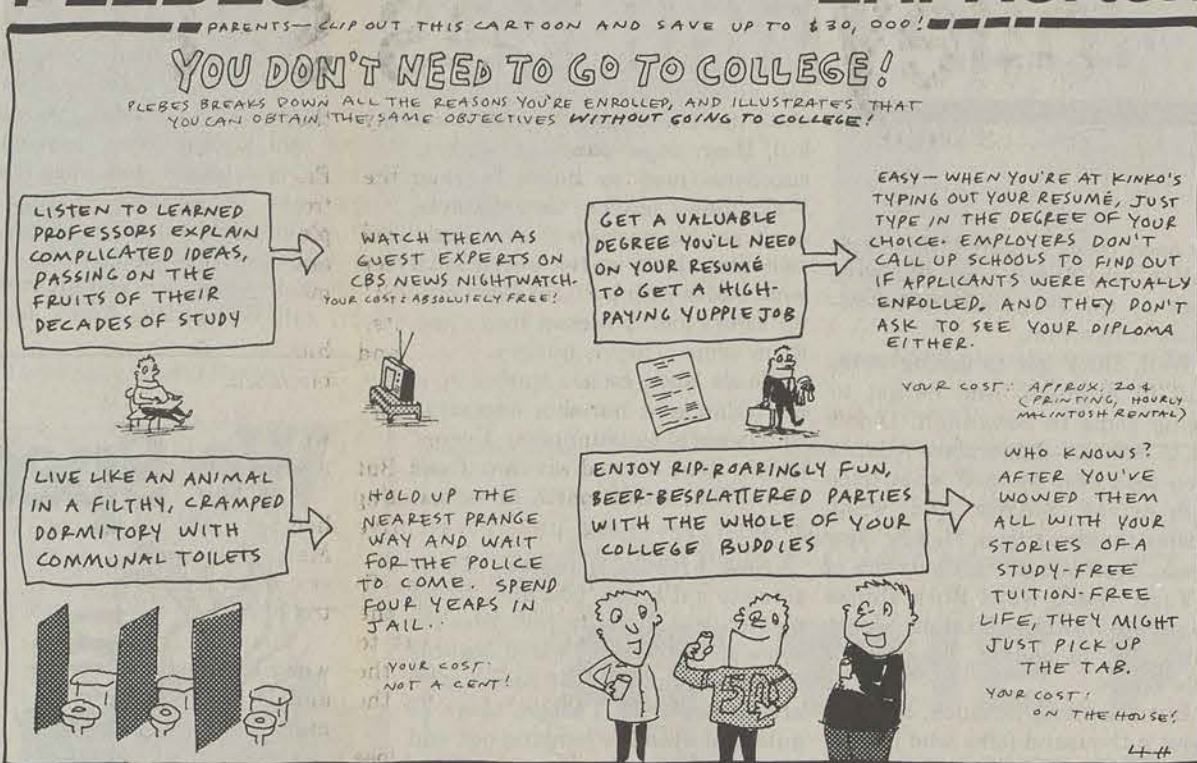 PARENTS— CLIP OUT THIS CARTOON AND SAVE UP TO $30,000!
YOU DON'T NEED TO GO TO COLLEGE!
PLEBES BREAKS DOWN ALL THE REASONS YOU'RE ENROLLED, AND ILLUSTRATES THAT
YOU CAN OBTAIN THE SAME OBJECTIVES WITHOUT GOING TO COLLEGE!
LISTEN TO LEARNED
PROFESSORS EXPLAIN
COMPLICATED IDEAS,
PASSING ON THE
FRUITS OF THEIR
DECADES OF STUDY
WATCH THEM AS
GUEST EXPERTS ON
CBS NEWS NIGHTWATCH.
YOUR COST: ABSOLUTELY FREE!
GET A VALUABLE
DEGREE YOU'LL NEED
ON YOUR RESUMÉ
TO GET A HIGH-
PAYING YUPPIE JOB
EASY— WHEN YOU'RE AT KINKO'S
TYPING OUT YOUR RESUMÉ, JUST
TYPE IN THE DEGREE OF YOUR
CHOICE. EMPLOYERS DON'T
CALL UP SCHOOLS TO FIND OUT
IF APPLICANTS WERE ACTUALLY
ENROLLED. AND THEY DON'T
ASK TO SEE YOUR DIPLOMA
EITHER.
YOUR COST: APPROX. 20¢
(PRINTING, HOURLY
MACINTOSH RENTAL)
LIVE LIKE AN ANIMAL
IN A FILTHY, CRAMPED
DORMITORY WITH
COMMUNAL TOILETS
HOLD UP THE
NEAREST PRANGE
WAY AND WAIT
FOR THE POLICE
TO COME. SPEND
FOUR YEARS IN
JAIL.
YOUR COST:
NOT A CENT!
ENJOY RIP-ROARINGLY FUN,
BEER-BESPLATTERED PARTIES
WITH THE WHOLE OF YOUR
COLLEGE BUDDIES
WHO KNOWS?
AFTER YOU'VE
WOWED THEM
ALL WITH YOUR
STORIES OF A
STUDY-FREE
TUITION-FREE
LIFE, THEY MIGHT
JUST PICK UP
THE TAB.
YOUR COST:
ON THE HOUSE!